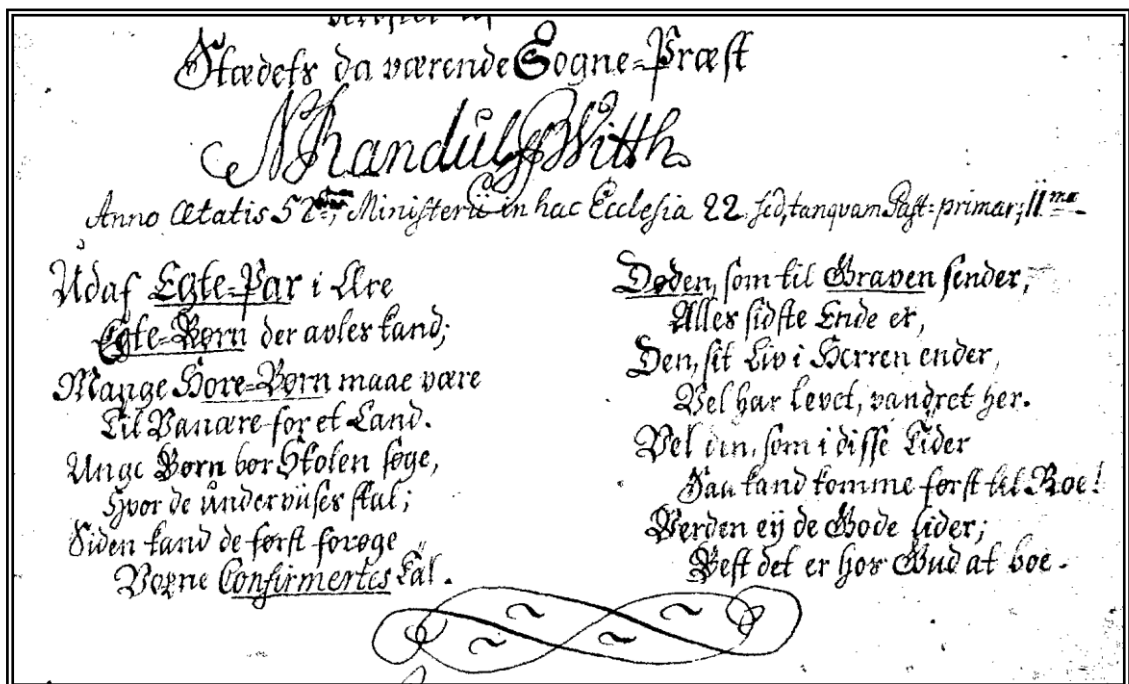 Stædets da værende Sogne-Præst
NRandulffWitth
Anno Ætatis 52 Ministerii in hac Ecclesia 22, sed, tanqvam Past: primar; 11ma
Udaf Egte-Par i Ære
Egte-Børn der avles kand;
Mange Hore-Børn maae være
Til Vanære for et Land.
Unge Børn bør Skolen søge,
Hvor de underviises skal;
Siden kand de først forøge
Voxne Confirmertes Tal.
Døden, som til Graven sender,
Alles sidste Ende er,
Den, sit Liv i Herren ender,
Vel har levet, vandret her.
Vel den, som i disse Tider
Saa kand komme først til Roe!
Verden eÿ de Gode lider;
Best det er hos Gud at boe.